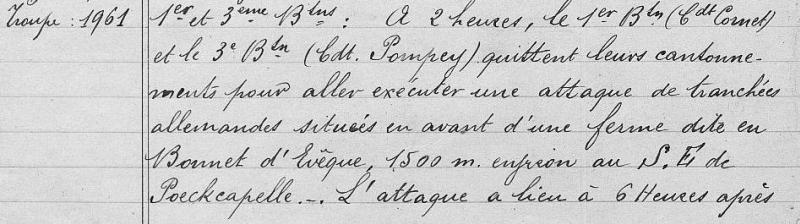 Troupe : 1961
1er et 3ème Btns : A 2 heures, le 1er Btn (Cdt Cornet)
et le 3e Btn (Cdt. Pompey) quittent leurs cantonne-
ments pour aller exécuter une attaque de tranchées
allemandes situées en avant d'une ferme dite en
Bonnet d'Evêque, 1500 m. environ au S. E de
Poeckcapelle.-. L'attaque a lieu à 6 Heures après